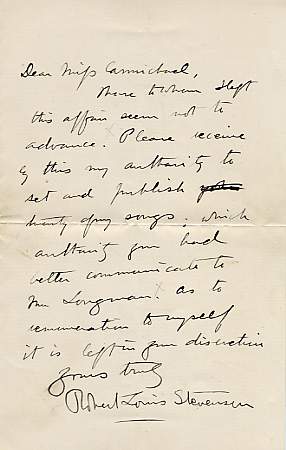 Dear Miss Carmichael,
those to whom I left
this affair seem not to
advance. Please receive
by this my authority to
set and publish
of my songs, which
authority you had
better communicate to
Mr Longman. As to
remuneration to myself
it is left in your discretion
Yours truly
Robert Louis Stevenson